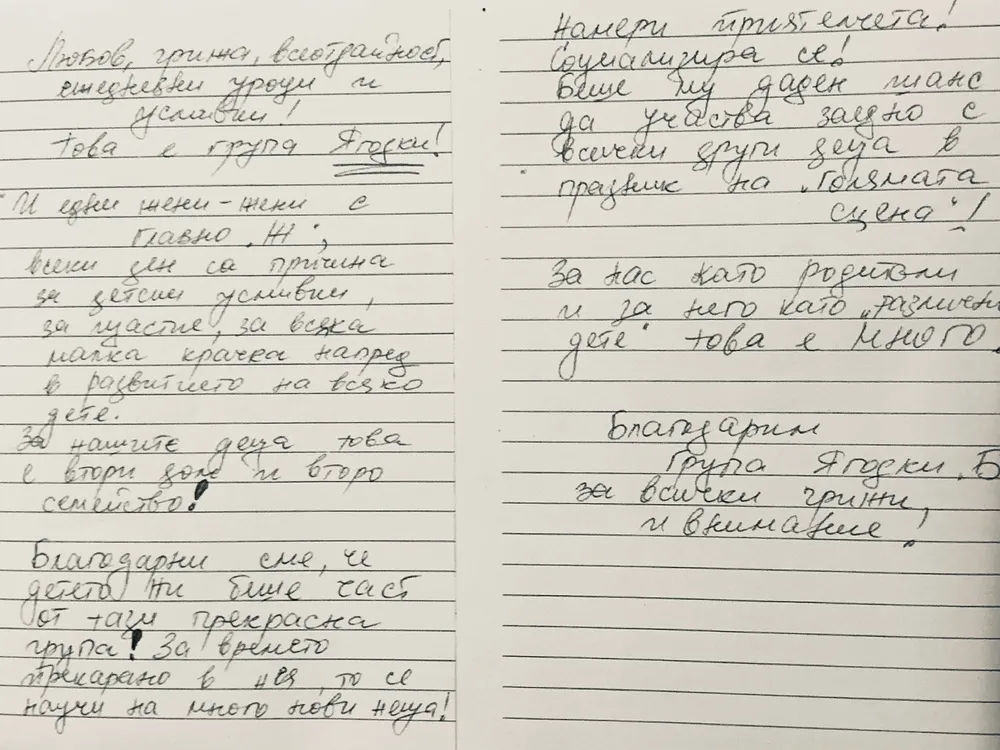 Любов, грижа, всеотдайност,
ежедневни уроци и
усмивки!
Това е група Ягодки!
"И едни жени-жени с
главно „Ж“,
всеки ден са причина
за детски усмивки,
за щастие, за всяка
малка крачка напред
в развитието на всяко
дете.
За нашите деца това
е втори дом и второ
семейство!
Благодарни сме, че
детето ни беше част
от тази прекрасна
група! За времето
прекарано в нея, то се
научи на много нови неща!
Намери приятелчета!
Социализира се!
Беше му даден шанс
да участва заедно с
всички други деца в
празник на „Голямата
сцена“!
За нас като родители
и за него като „различно
дете“ това е МНОГО.
Благодарим
Група Ягодки „Б
за всички грижи,
и внимание!